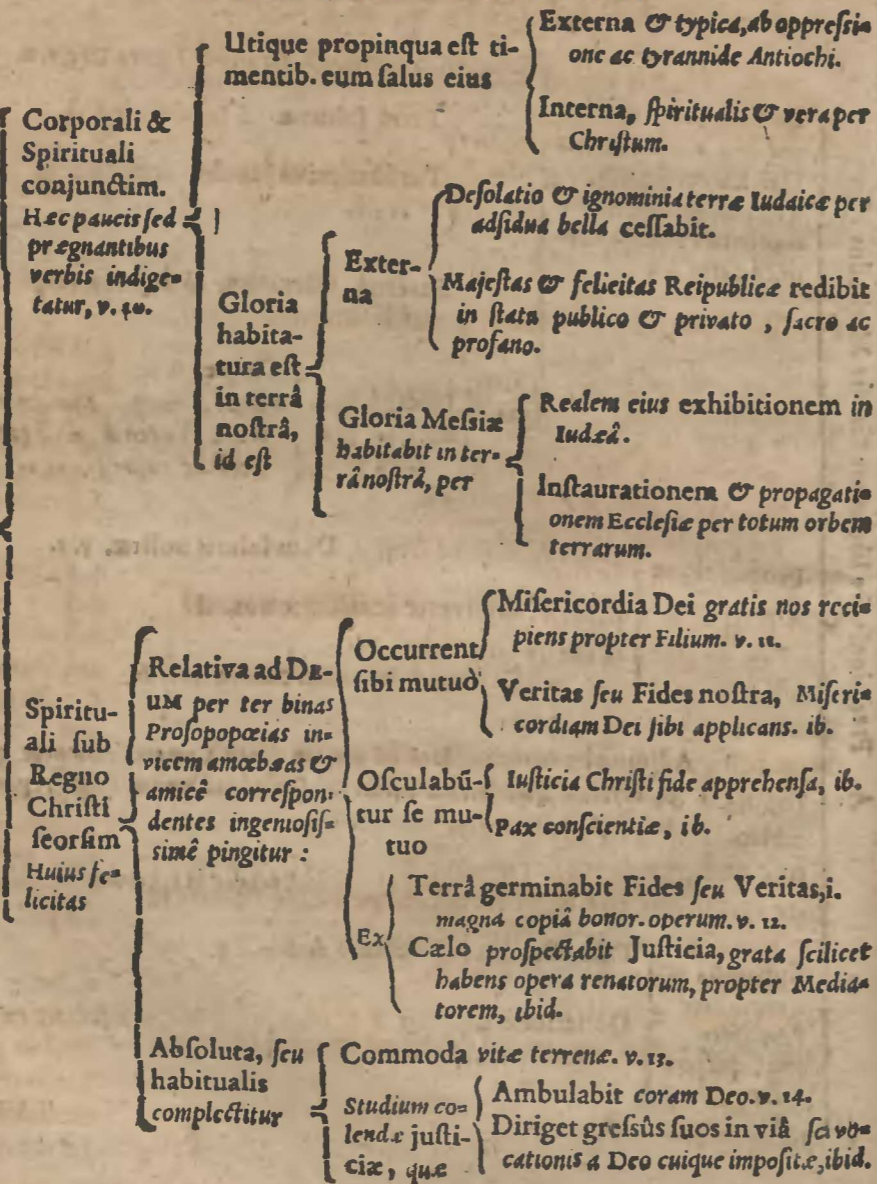 Corporali &
Spirituali
conjunctim.
Hæc paucis sed
prægnantibus
verbis indige-
tatur, v. 10.
Utique propinqua est ti-
mentib. eum salus eius
Externa & typica, ab oppressi-
one ac tyrannide Antiochi.
Interna, spiritualis & vera per
Christum.
Gloria
habita-
tura est
in terrâ
nostrâ,
id est
Exter-
na
Desolatio & ignominia terræ Iudaicæ per
adsidua bella cessabit.
Majestas & felicitas Reipublicæ redibit
in statu publico & privato, sacro ac
profano.
Gloria Messiæ
habitabit in ter-
râ nostrâ, per
Realem eius exhibitionem in
Iudæâ.
Instaurationem & propagati-
onem Ecclesiæ per totum orbem
terrarum.
Spiritu-
ali sub
Regno
Christi
seorsim
Huius fe-
licitas
Relativa ad DE-
UM per ter binas
Prosopopœias in-
vicem amœbæas &
amicê correspon-
dentes ingeniosis-
simê pingitur :
Occurrent
sibi mutuò
Misericordia Dei gratis nos reci-
piens propter Filium. v. 11.
Veritas seu Fides nostra, Miseri-
cordiam Dei sibi applicans. ib.
Osculabū-
tur se mu-
tuo
Iusticia Christi fide apprehensa, ib.
Pax conscientiæ, ib.
Ex
Terrâ germinabit Fides seu Veritas, i.
magna copiâ bonor. operum. v. 12.
Cælo prospectabit Justicia, grata scilicet
habens opera renatorum, propter Media-
torem, ibid.
Absoluta, seu
habitualis
complectitur
Commoda vitæ terrenæ. v. 13.
Studium co-
lendæ justi-
ciæ, quæ
Ambulabit coram Deo. v. 14.
Diriget gressûs suos in viâ sci vo-
cationis a Deo cuique impositæ, ibid.